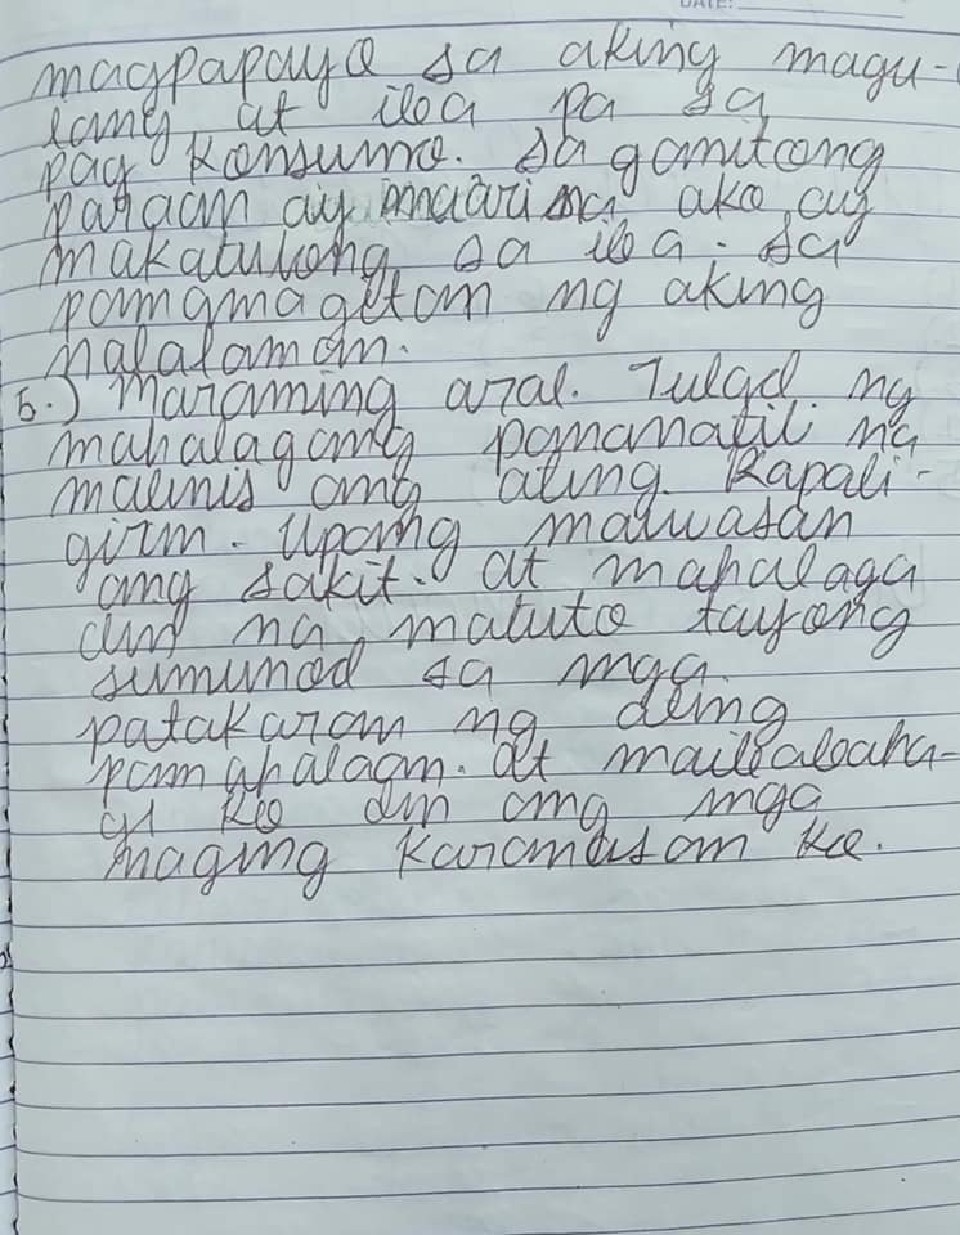 DATE:
magpapayo sa aking magu-
lang, at iba pa sa
pag konsumo. sa gamitong
paraan ay maari na ako ay
makatulong sa iba. sa
pamgmagitan ng aking
nalalaman.
5.) Maraming aral. Tulad ng
mahalagang pamamatil na
malinis ang ating kapali-
girin. Upang maiwasan
ang sakit. at mahalaga
din na matuto tayong
sumunod sa mga
patakaran ng ating
pamahalaan. at maibabaha-
gi ko din ang mga
maging karanasan ko.